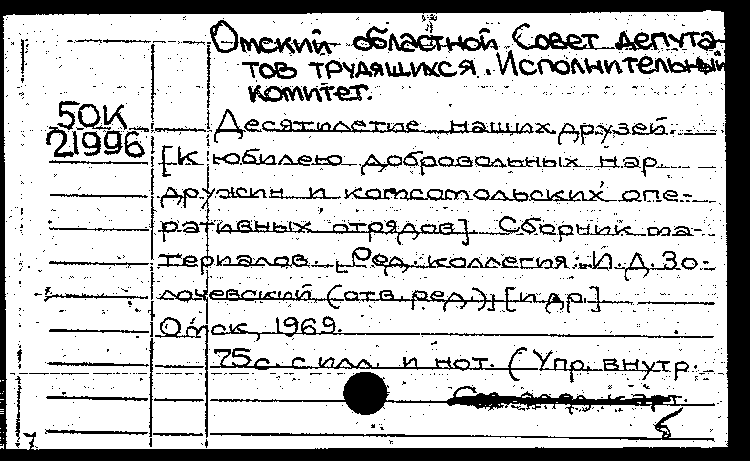 Омский областной Совет депута-
тов трудящихся. Исполнительный
комитет.
50К
21996
Десятилетие наших друзей.
[К юбилею добровольных нар.
дружин и комсомольских опе-
ративных отрядов]. Сборник ма-
териалов. [Ред. коллегия: И.Д. Зо-
лочевский (отв. ред.), [и др.]
Омск, 1969.
75с. с илл. и нот. (Упр. внутр.